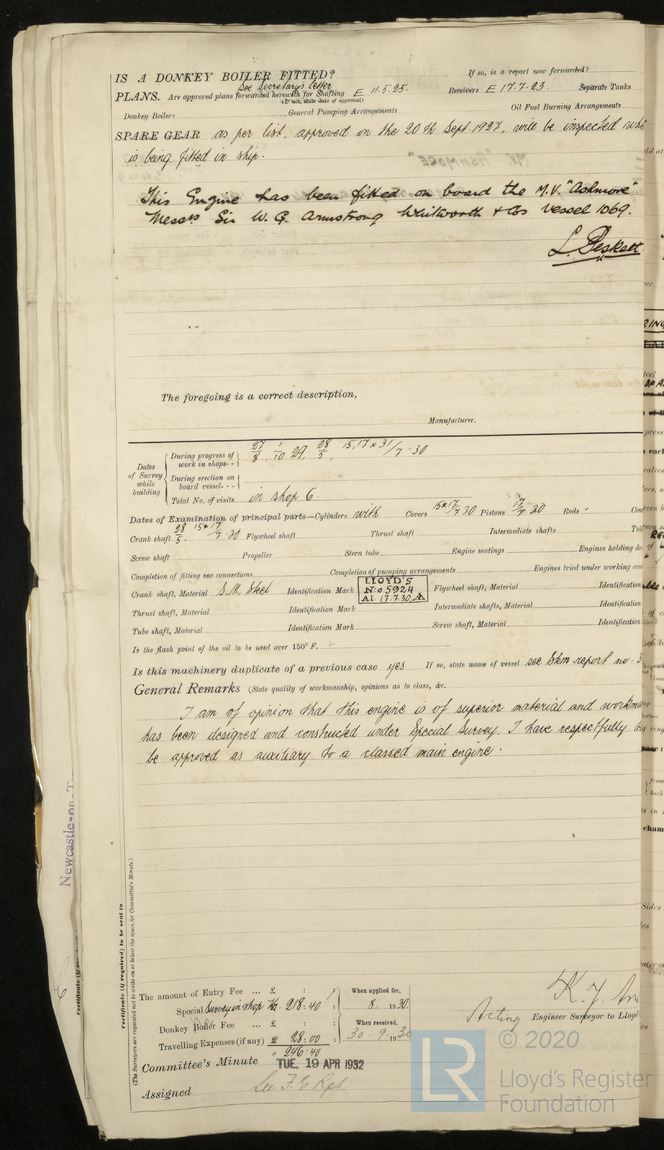 IS A DONKEY BOILER FITTED?
If so, is a report now forwarded?
See Secretary's letter
PLANS. Are approved plans forwarded herewith for Shafting E 11.5.25. Receivers E 17.7.23. Separate Tanks
(If not, state date of approval)
Donkey Boilers General Pumping Arrangements Oil Fuel Burning Arrangements
SPARE GEAR as per list, approved on the 20th Sept 1927, will be inspected
is being fitted in ship.
This Engine has been fitted on board the M.V. "Ashmore"
Messrs Sir W. G. Armstrong Whitworth & Cos Vessel 1069.
L. Peskett
The foregoing is a correct description,
Manufacturer.
Dates of Survey while building
During progress of work in shops-- 27/8 1/10 29, 28/5, 15, 17 & 31/7-30
During erection on board vessel---
Total No. of visits in shop 6
Dates of Examination of principal parts—Cylinders Covers 15&17/7 30 Pistons 17/7-30 Rods -
Crank shaft 28/5, 15&17/7-30 Flywheel shaft Thrust shaft Intermediate shafts
Screw shaft Propeller Stern tube Engine seatings Engines holding
Completion of fitting sea connections Completion of pumping arrangements Engines tried under working
Crank shaft, Material S.M. Steel Identification Mark LLOYD'S Flywheel shaft, Material Identification
No 5924
A.I. 17.7.30
Thrust shaft, Material Identification Mark Intermediate shafts, Material Identification
Tube shaft, Material Identification Mark Screw shaft, Material Identification
Is the flash point of the oil to be used over 150° F.
Is this machinery duplicate of a previous case yes If so, state name of vessel see Skm report no. 3
General Remarks (State quality of workmanship, opinions as to class, &c.
I am of opinion that this engine is of superior material and
has been designed and constructed under Special Survey. I have respectfully
be approved as auxiliary to a classed main engine.
Newcastle-on-T
Certificate (if required) to be sent to
(The Surveyors are requested not to write on or below the space for Committee's Minute.)
The amount of Entry Fee ... £ : : When applied for,
Special Survey in shop 218:40 : 8. 1930
Donkey Boiler Fee ... £ : : When received,
Travelling Expenses (if any) £ 28:00 : 30.9.1930
246:40
K. J.
Acting Engineer Surveyor to Lloyd
Committee's Minute TUE. 19 APR 1932
Assigned
LR
© 2020
Lloyd's Register
Foundation